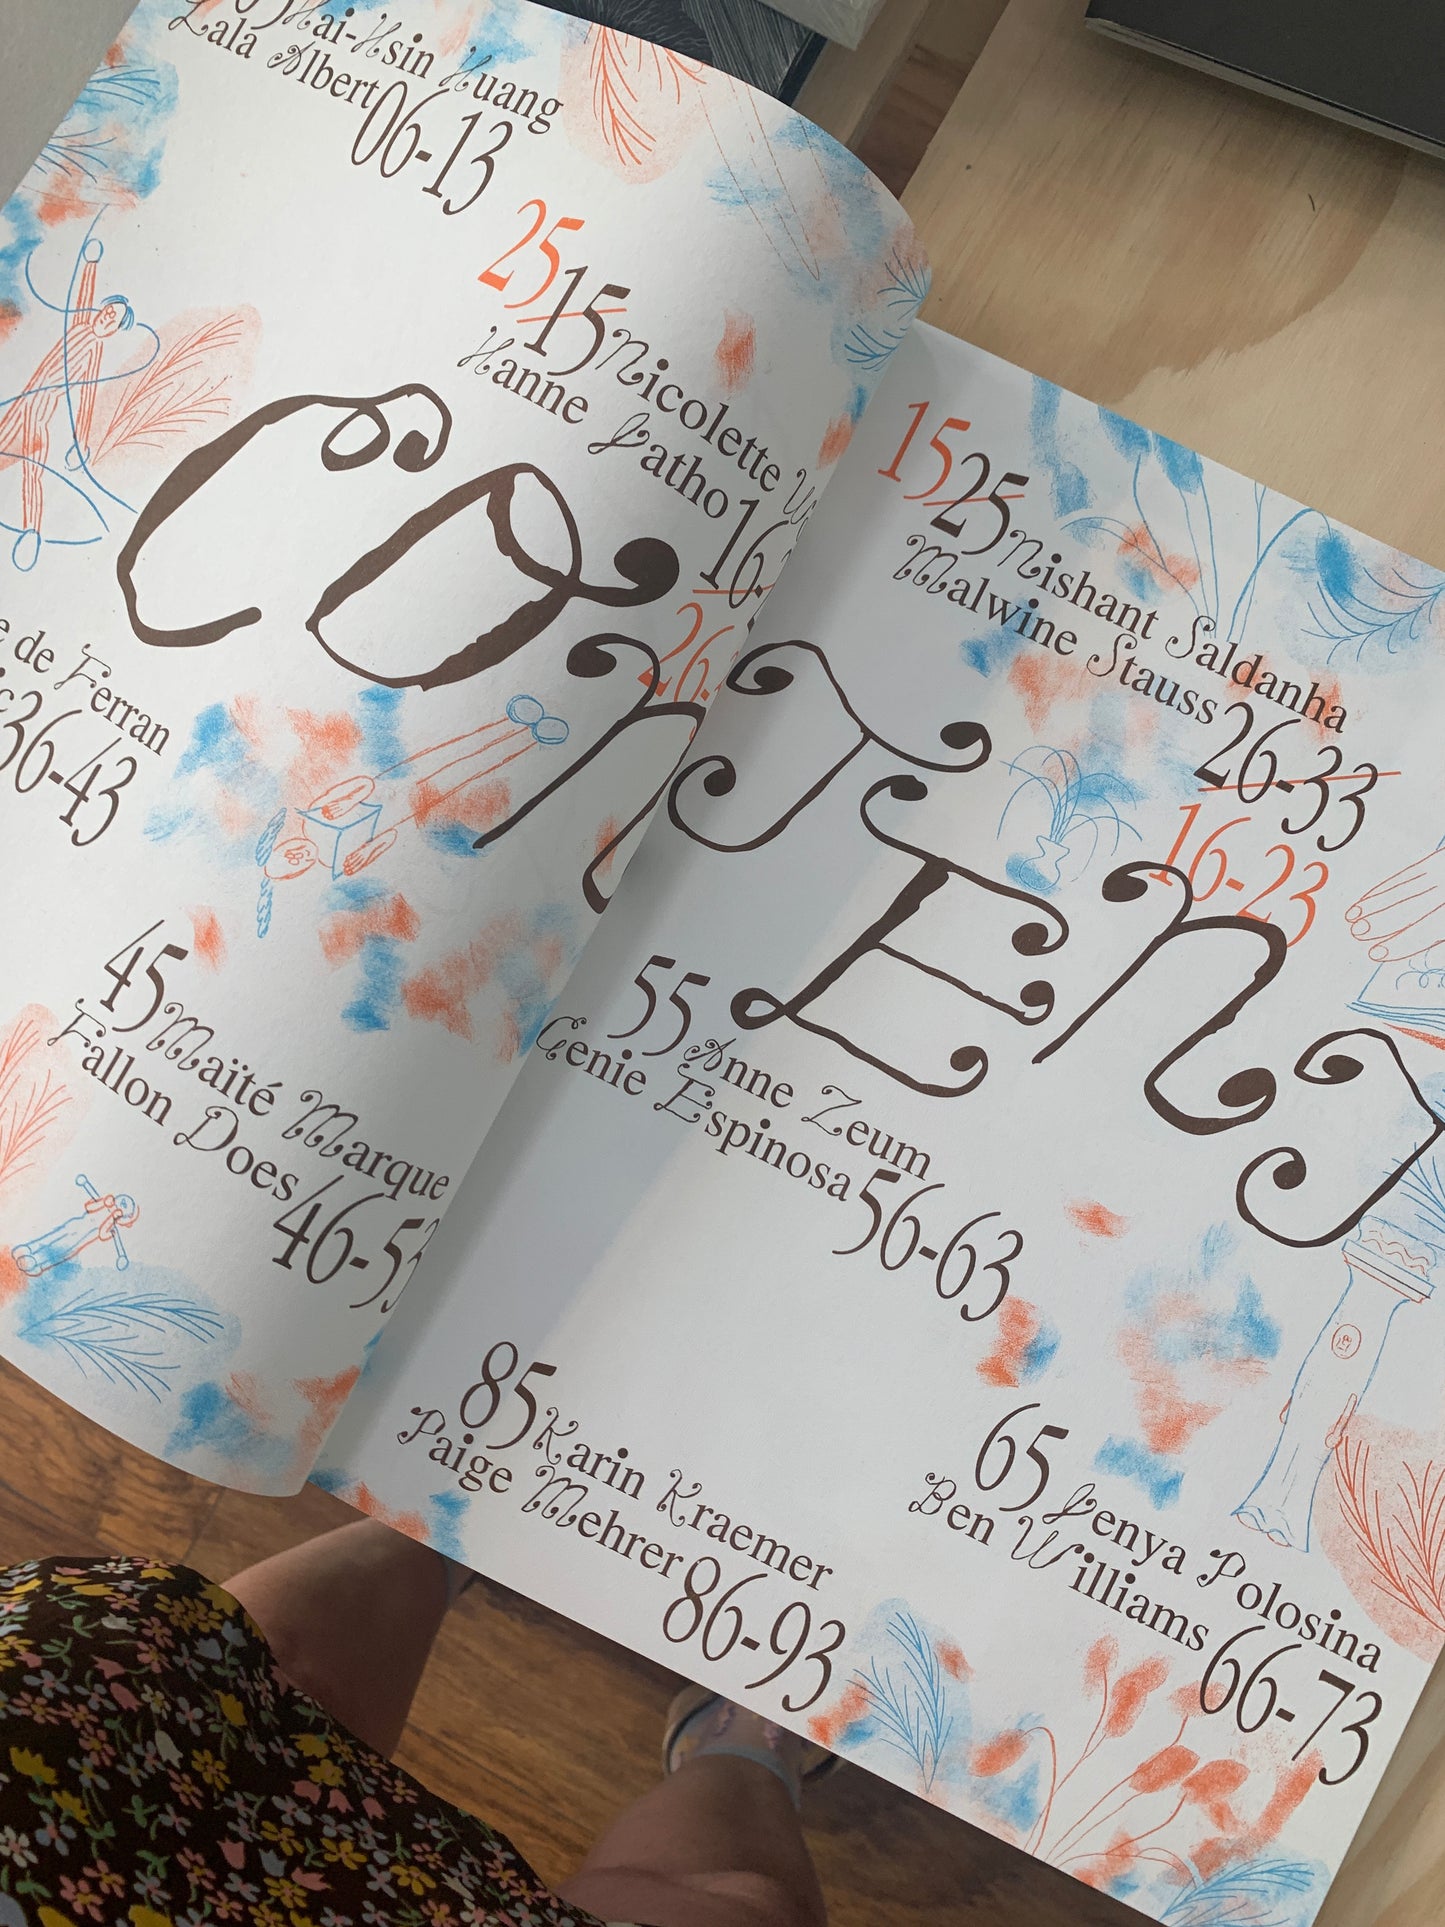 Hai-Hsin Huang
Lala Albert 06-13
25
15 Nicolette
Hanne Latho 16-
26-
15
25 Nishant Saldanha
Malwine Stauss 26-33
16-23
CONTENT
de Ferran
36-43
45 Maïté Marque
Fallon Does 46-53
55 Anne Zeum
Genie Espinosa 56-63
85 Karin Kraemer
Paige Mehrer 86-93
65 Jenya Polosina
Ben Williams 66-73